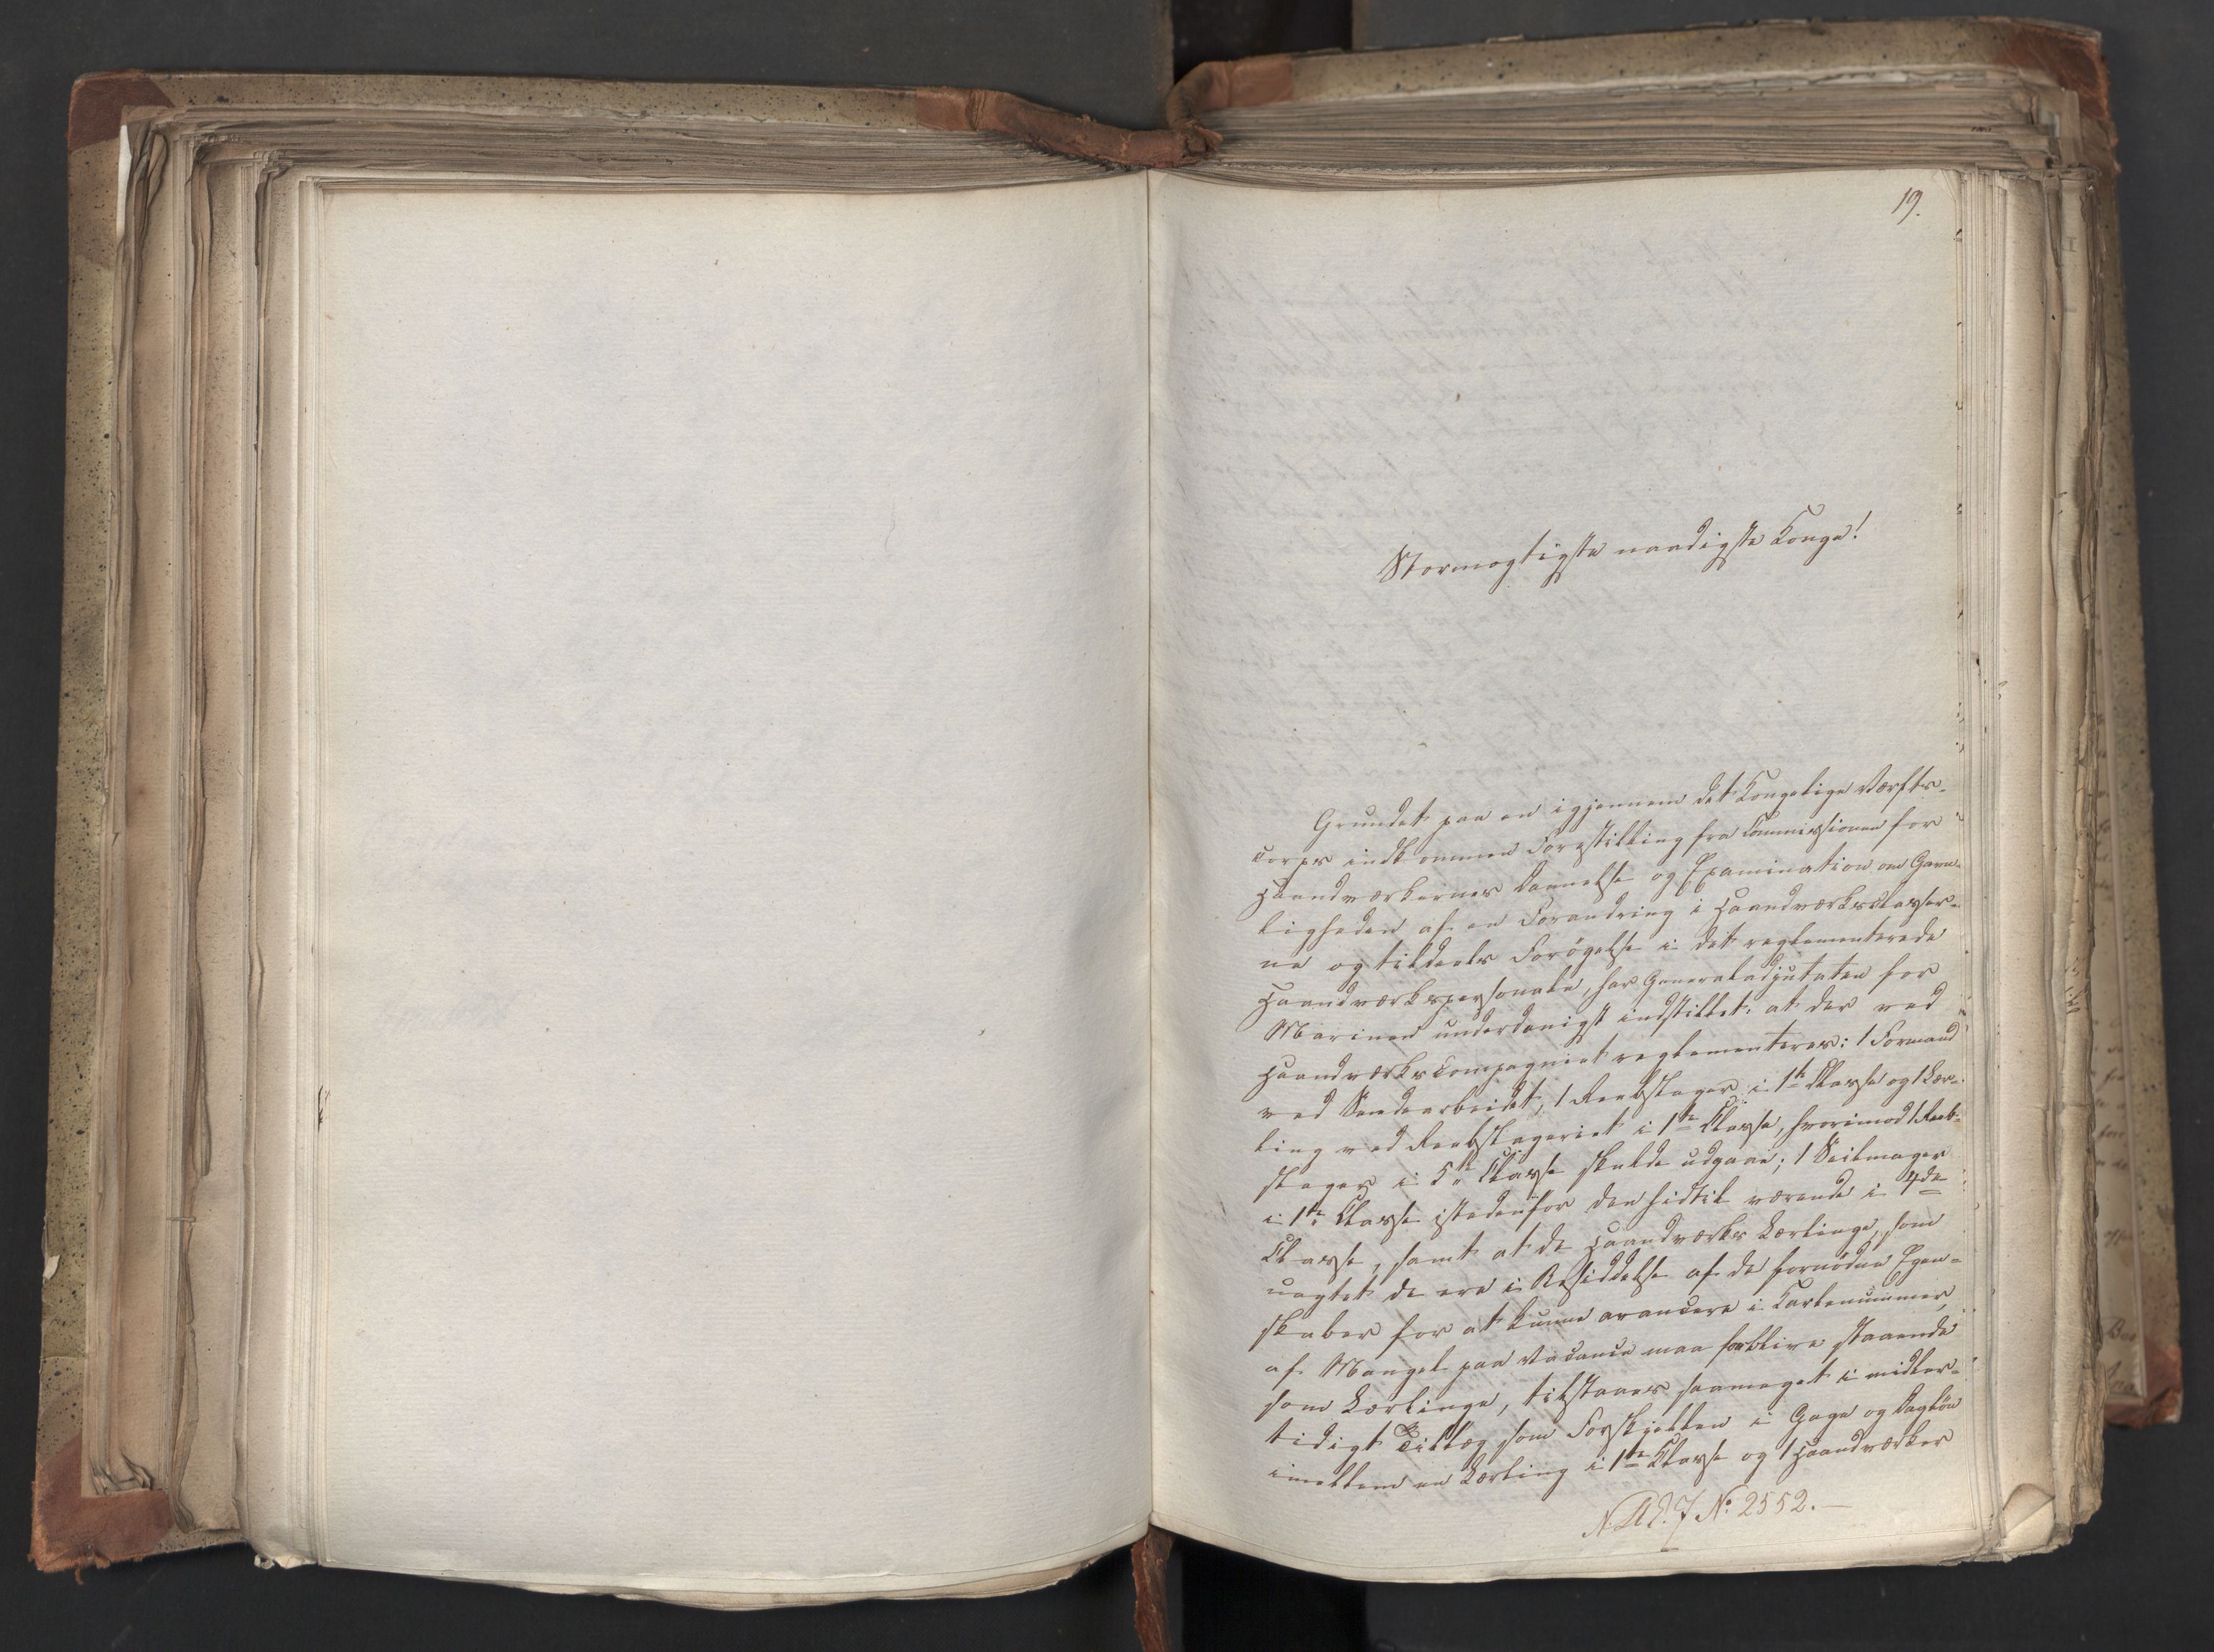 19.
Stormægtigste naadigste Konge!
Grundet paa en igjennem det Kongelige Værfts-
corps indkommen Forestilling fra Commissionen for
Haandværkernes Dannelse og Examination om Gavn-
ligheden af en Forandring i Haandværksclasser-
ne og tildeels Forøgelse i det reglementerede
Haandværkspersonale, har Generaladjutaten for
Marinen underdanigst indstillet: at der ved
Haandværkscompagniet reglementeres: 1 Formand
ved Smedearbeidet, 1 Reebslager i 1te Classe og 1 Lær-
ling ved Reebslageriet i 1te Classe, hvorimod 1 Reeb-
slager i 5te Classe skulde udgaae; 1 Seilmager
i 1te Classe istedenfor den hidtil værende i 4de
Classe, samt at de Haandværks Lærlinge, som
uagtet de ere i Besiddelse af de fornødne Egen-
skaber for at kunne avancere i Karlenummer,
af Mangel paa Vacance maa forblive staaende
som Lærlinge, tilstaaes saameget i midler-
tidigt Tillæg som Forskjellen i Gage og Dagløn
imellem en Lærling i 1te Classe og 1 Haandværker
N: 2552.